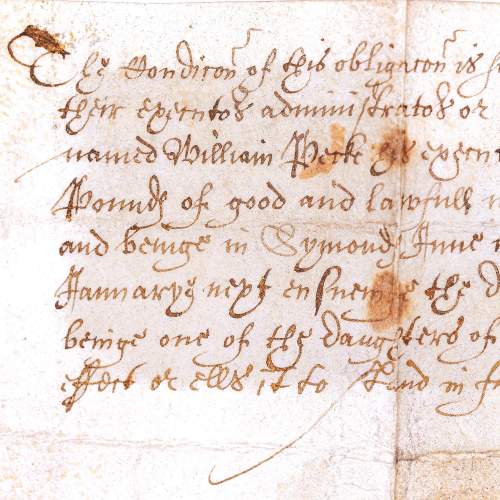 The Condicon of this obligacon is s
their executos administratos or
named William Pecke his execut
Pounds of good and lawfull m
and beinge in Symonds Inne
January next ensueinge the d
beinge one of the daughters of
effect or ells it to stand in f